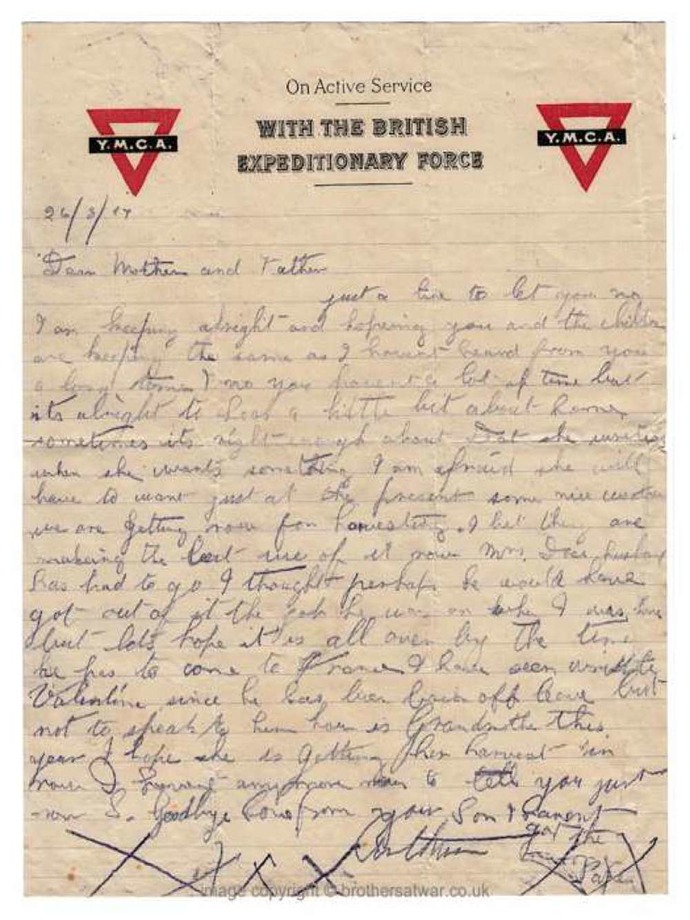 On Active Service
WITH THE BRITISH
EXPEDITIONARY FORCE
Y.M.C.A.
Y.M.C.A.
26/8/17
Dear Mother and Father
just a line to let you no
I am keeping alright and hopeing you and the
are keeping the same as I havent heard from you
a long time I no you havent a lot of time but
its alright to hear a little bit about home
sometimes its right enough about she
when she wants something I am afraid she will
have to want just at the present some nice
we are getting now for harvesting I bet they are
makeing the best use of it now Mrs. Dear husband
has had to go I thought perhaps he would have
got out of it the job he was on when I was home
but lets hope it is all over by the time
he has to come to France I have seen
Valentine since he has been off leave but
not to speak to him how is Grandmother this
year I hope she is getting her harvest in
now I havent anymore to tell you just
now So Goodbye love from your Son I havent
got the
Arthur
X X X X X
Paper
image copyright © brothersatwar.co.uk